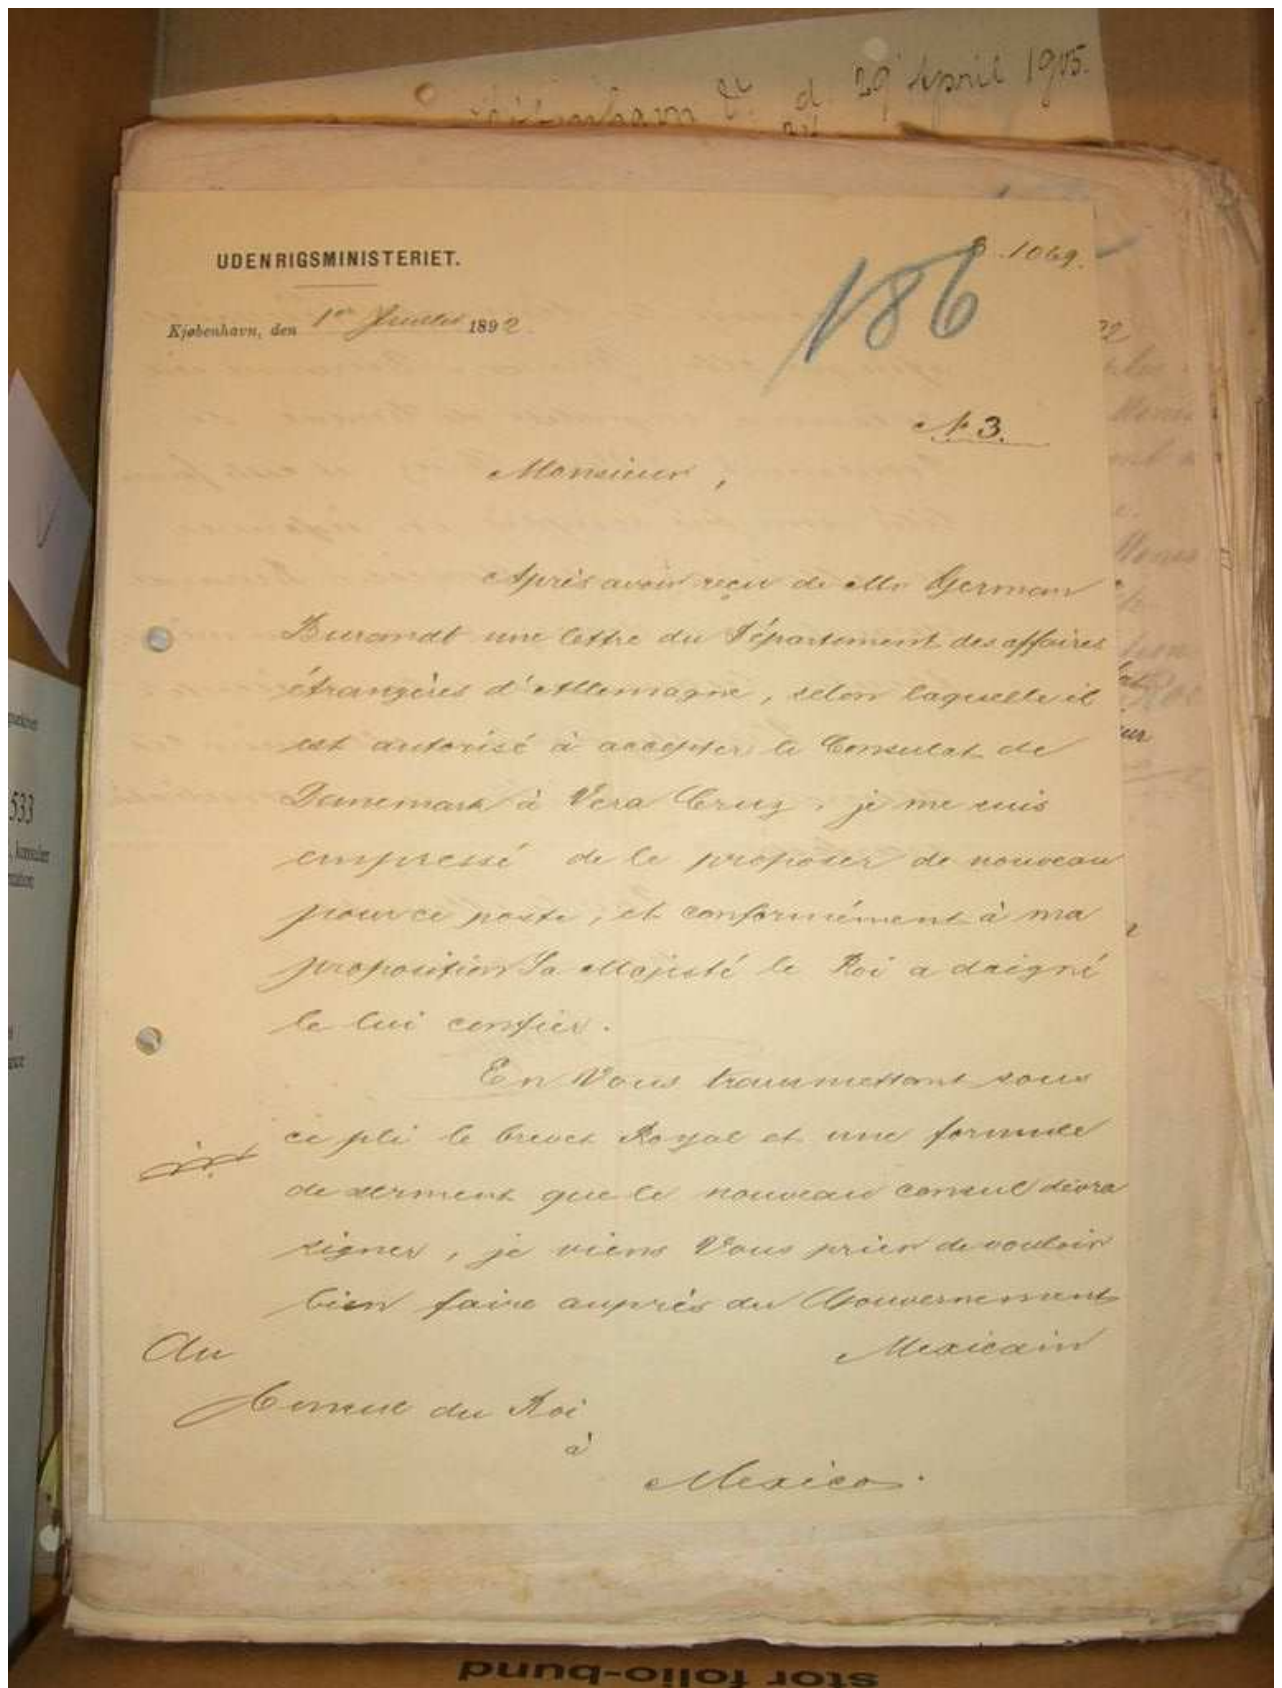 29 April 1905.
d.
UDENRIGSMINISTERIET.
B. 1069.
186
Kjøbenhavn, den 1er Juillet 1892
N 3.
Monsieur,
Après avoir reçu de Mr German
Burandt une lettre du Département des affaires
étrangères d'Allemagne, selon laquelle il
est autorisé à accepter le Consulat de
Danemark à Vera Cruz, je me suis
empressé de le proposer de nouveau
pour ce poste, et conformément à ma
proposition Sa Majesté le Roi a daigné
le lui confier.
En Vous transmettant sous
ce pli le brevet Royal et une formule
de serment que le nouveau consul devra
signer, je viens Vous prier de vouloir
bien faire auprès du Gouvernement
Mexicain
Au
Consul du Roi
à
Mexico.
533
stor folio-bund